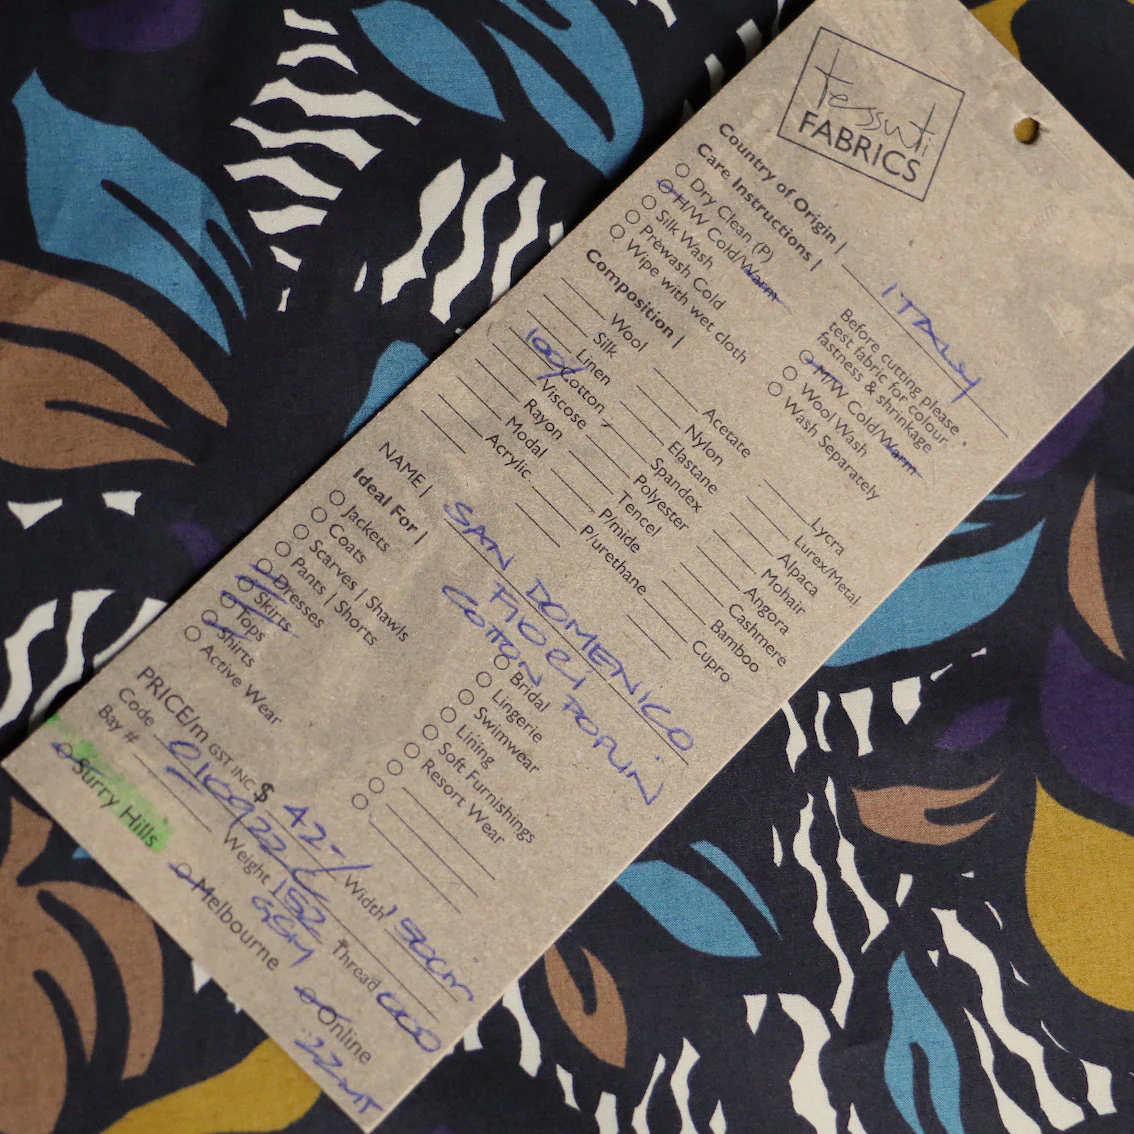 tessuti
FABRICS
Country of Origin | ITALY
Care Instructions |
Dry Clean (P)
H/W Cold/Warm
Silk Wash
Prewash Cold
Wipe with wet cloth
Before cutting please
test fabric for colour
fastness & shrinkage
M/W Cold/Warm
Wool Wash
Wash Separately
Composition |
Wool
Silk
Linen
100% Cotton
Viscose
Rayon
Modal
Acrylic
Acetate
Nylon
Elastane
Spandex
Polyester
Tencel
P/mide
P/urethane
Lycra
Lurex/Metal
Alpaca
Mohair
Angora
Cashmere
Bamboo
Cupro
NAME | SAN DOMENICO
FIORI
COTTON POPLIN
Ideal For |
Jackets
Coats
Scarves | Shawls
Pants | Shorts
Dresses
Skirts
Tops
Shirts
Active Wear
Bridal
Lingerie
Swimwear
Lining
Soft Furnishings
Resort Wear
PRICE/m GST INC $ 42-/ Width 150cm
Code
Bay # Weight 152 GSM Thread
Surry Hills Melbourne Online